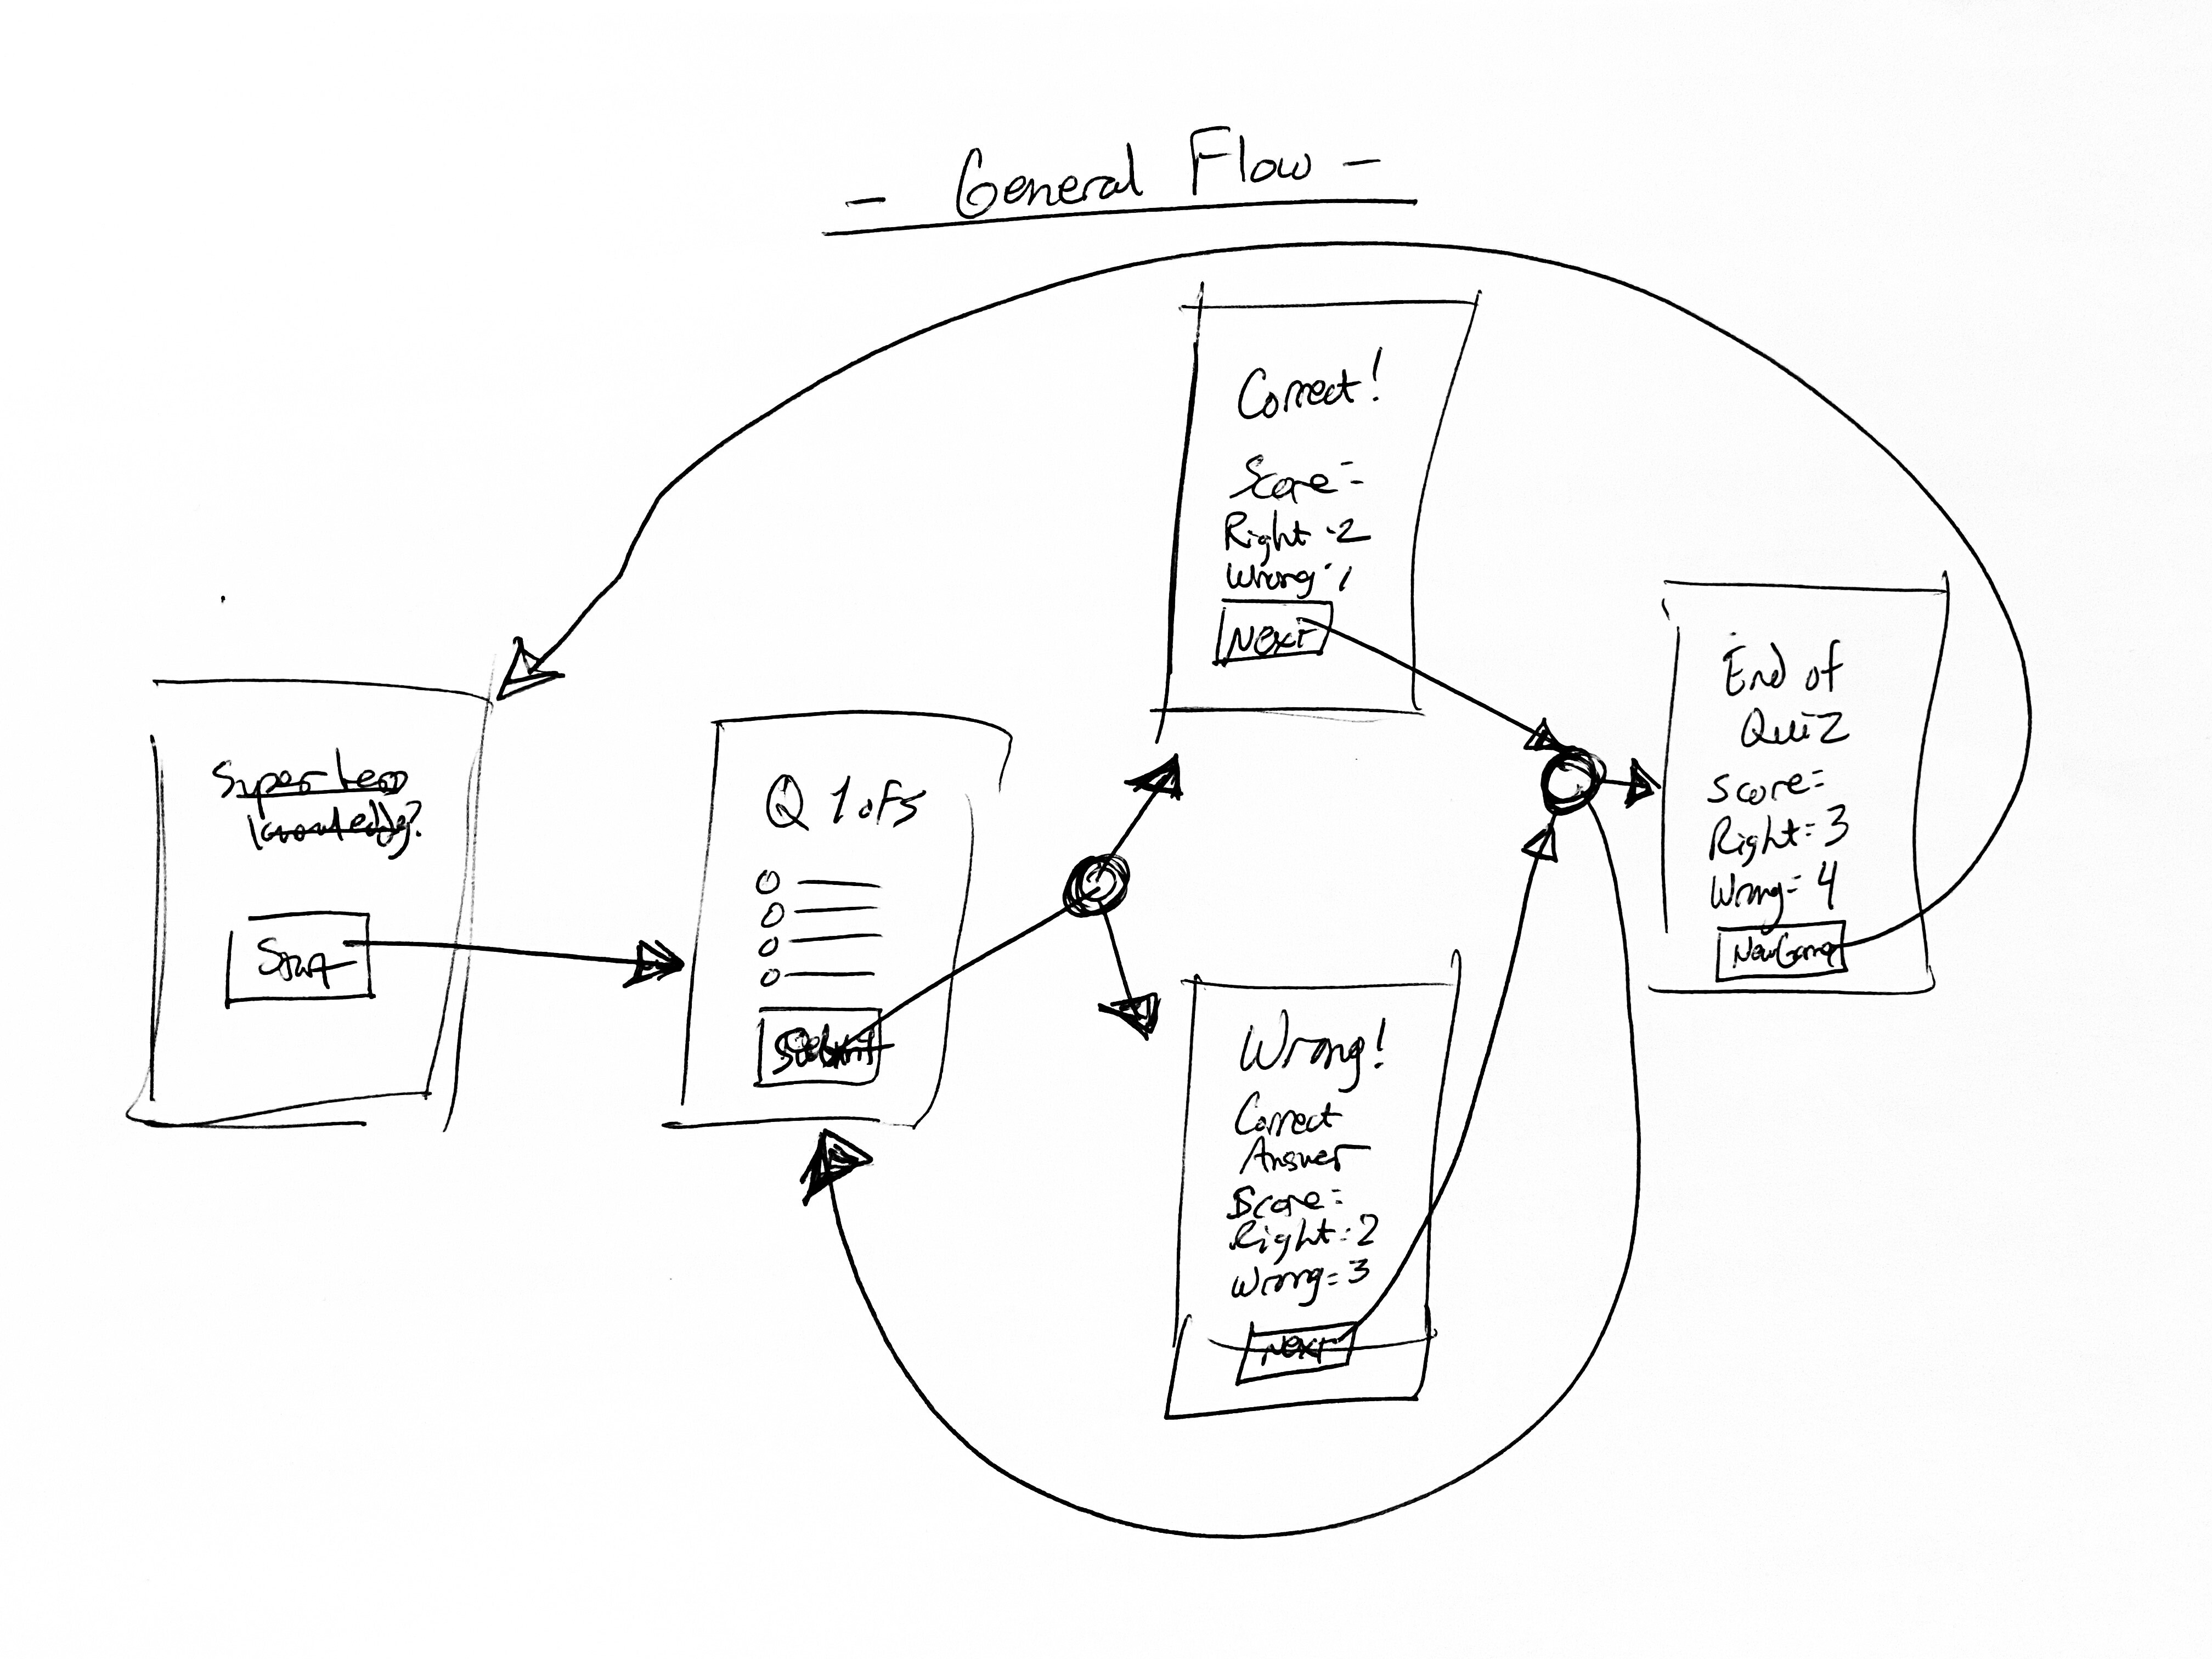 - General Flow -
Superhero
knowledge?
Start
Q 1 of 5
Submit
Correct!
Score=
Right=2
Wrong=1
Next
Wrong!
Correct
Answer
Score=
Right=2
Wrong=3
Next
End of
Quiz
Score=
Right=3
Wrong=4
New Game